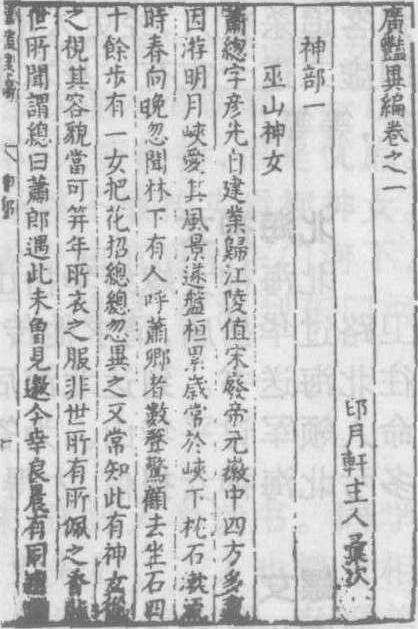 廣豔異編卷之一
印月軒主人彙次
神部一
巫山神女
蕭總字彥先自建業歸江陵值宋廢帝元徽中四方多
因游明月峽愛其風景遂盤桓累歲常於峽下枕石漱
時春向晚忽聞林下有人呼蕭卿者數聲驚顧去坐石四
十餘步有一女把花招總總忽異之又常知此有神女從
之視其容貌當可笄年所衣之服非世所有所佩之香
世所聞謂總曰蕭郎遇此未曾見邀今幸良晨有同